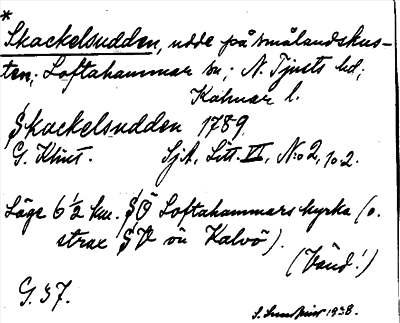 *
Skackelsudden, udde på smålandskus-
ten; Loftahammar sn; N. Tjusts hd;
Kalmar l.
Skackelsudden 1789
G. Klint. SjA, Litt. VI, N:o 2, 10 2.
Läge 6 1/2 km. SÖ Loftahammars kyrka (o.
strax SV om Kalvö).
(Vänd!)
G. 37.
1938.